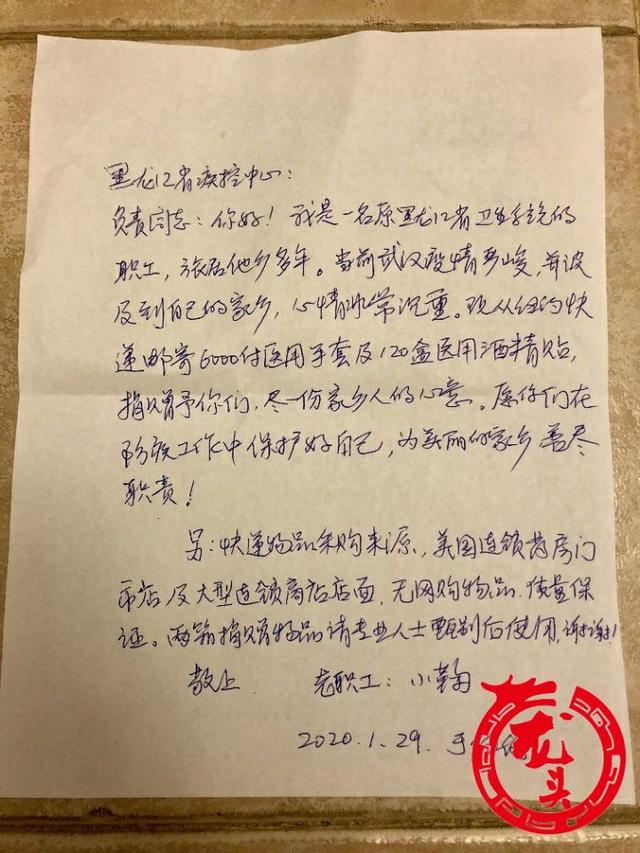 黑龙江省疾控中心：
负责同志：你好！我是一名原黑龙江省卫生系统的
职工，旅居他乡多年。当前武汉疫情严峻，并波
及到自己的家乡，心情非常沉重。现从纽约快
递邮寄6000付医用手套及120盒医用酒精贴，
捐赠予你们，尽一份家乡人的心意。愿你们在
防疫工作中保护好自己，为美丽的家乡善尽
职责！
另：快递物品采购来源，美国连锁药房门
市店及大型连锁商店店面，无网购物品，质量保
证。两箱捐赠物品请专业人士甄别后使用，谢谢！
敬上 老职工：小菊
2020.1.29.于纽约
龙头